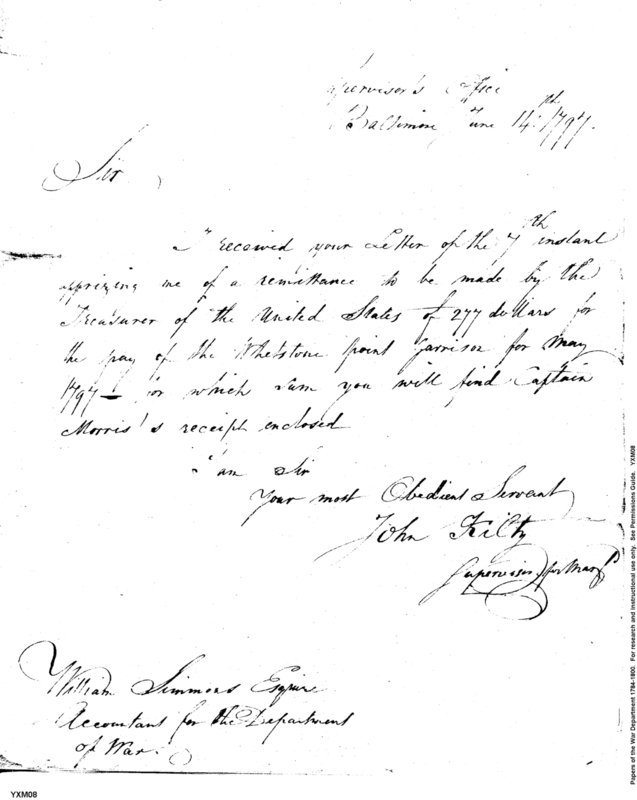 Supervisor's Office
Baltimore June 14th 1797.
Sir
I received your Letter of the 7th instant
apprizing me of a remittance to be made by the
Treasurer of the United States of 277 dollars for
the pay of the Whetstone point Garrison for May
1797 — for which sum you will find Captain
Morris's receipt enclosed
I am Sir
Your most Obedient Servant
John Kilty
Supervisor for Maryd
William Simmons Esquire
Accountant for the Department
of War.
YXM08
Papers of the War Department 1784-1800. For research and instructional use only. See Permissions Guide. YXM08